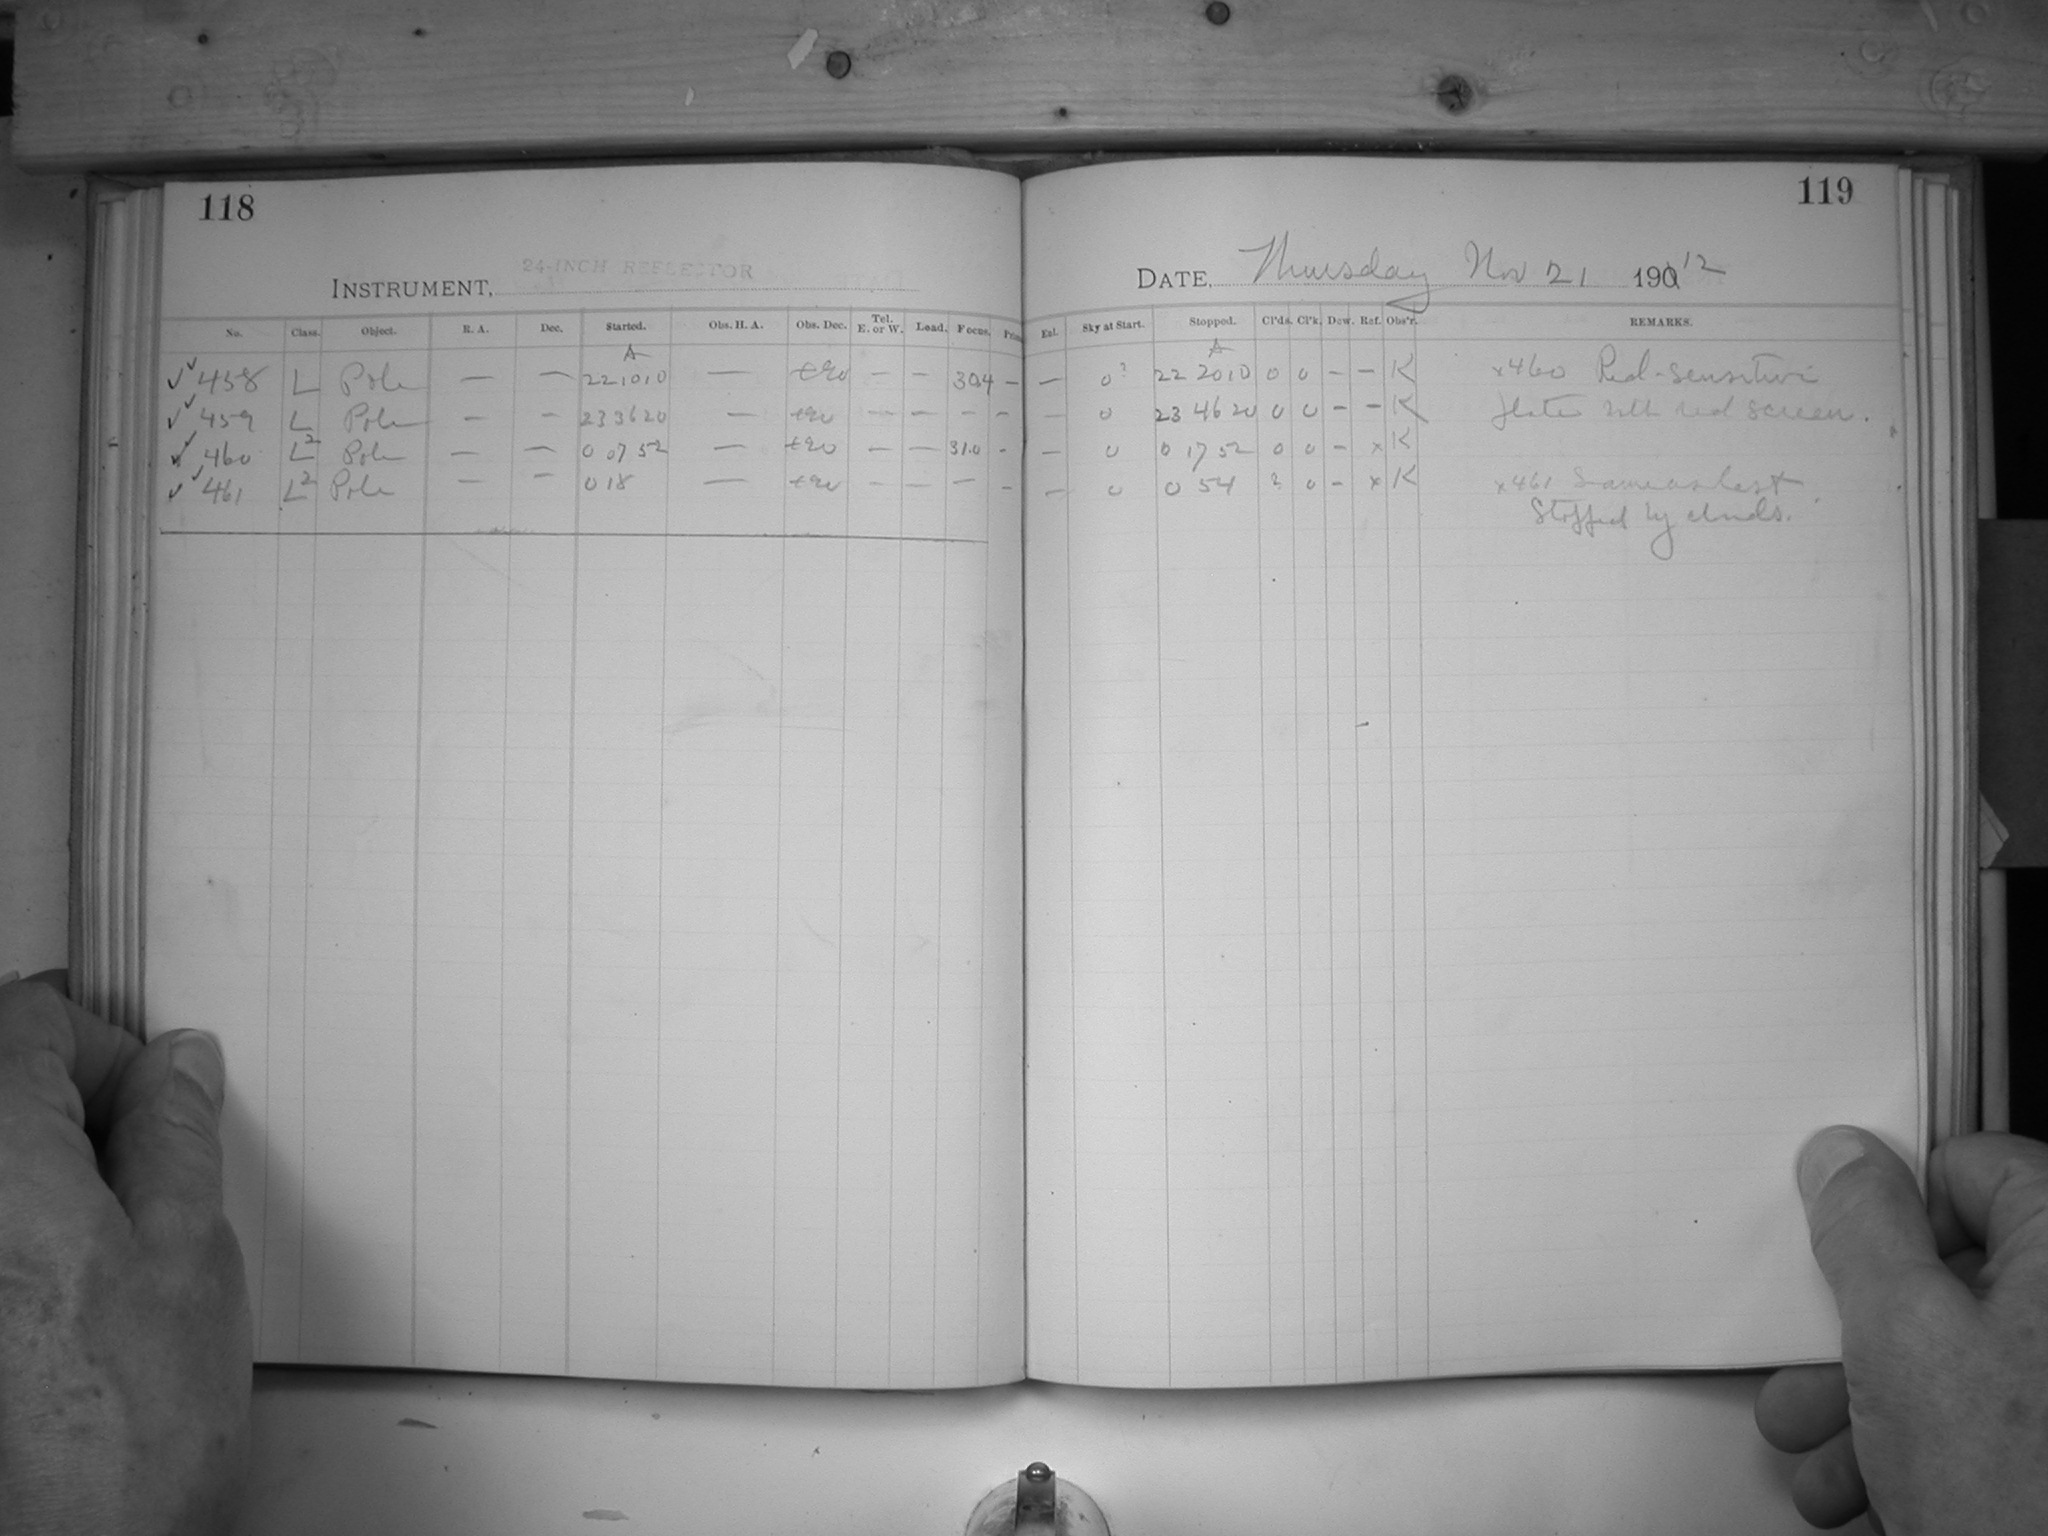 118
119
INSTRUMENT, 24-INCH REFLECTOR
DATE, Thursday Nov 21 190 12
No. Class. Object. R. A. Dec. Started. Obs. H. A. Obs. Dec. Tel. E. or W. Load. Focus. Prism Enl. Sky at Start. Stopped. Cl'ds. Cl'k. Dew. Ref. Obs'r. REMARKS.
A A
✓✓ 458 L Pole — — 22 10 10 — +90 — — 30.4 — — 0? 22 20 10 0 0 — — K x460 Red-sensitive
✓✓ 459 L Pole — — 23 36 20 — +90 — — — — — 0 23 46 20 0 0 — — K plate with red screen.
✓✓ 460 L2 Pole — — 0 07 52 — +90 — — 31.0 — — 0 0 17 52 0 0 — x K
✓✓ 461 L2 Pole — — 0 18 — +90 — — — — — 0 0 54 ? 0 — x K x461 Same as last
Stopped by clouds.